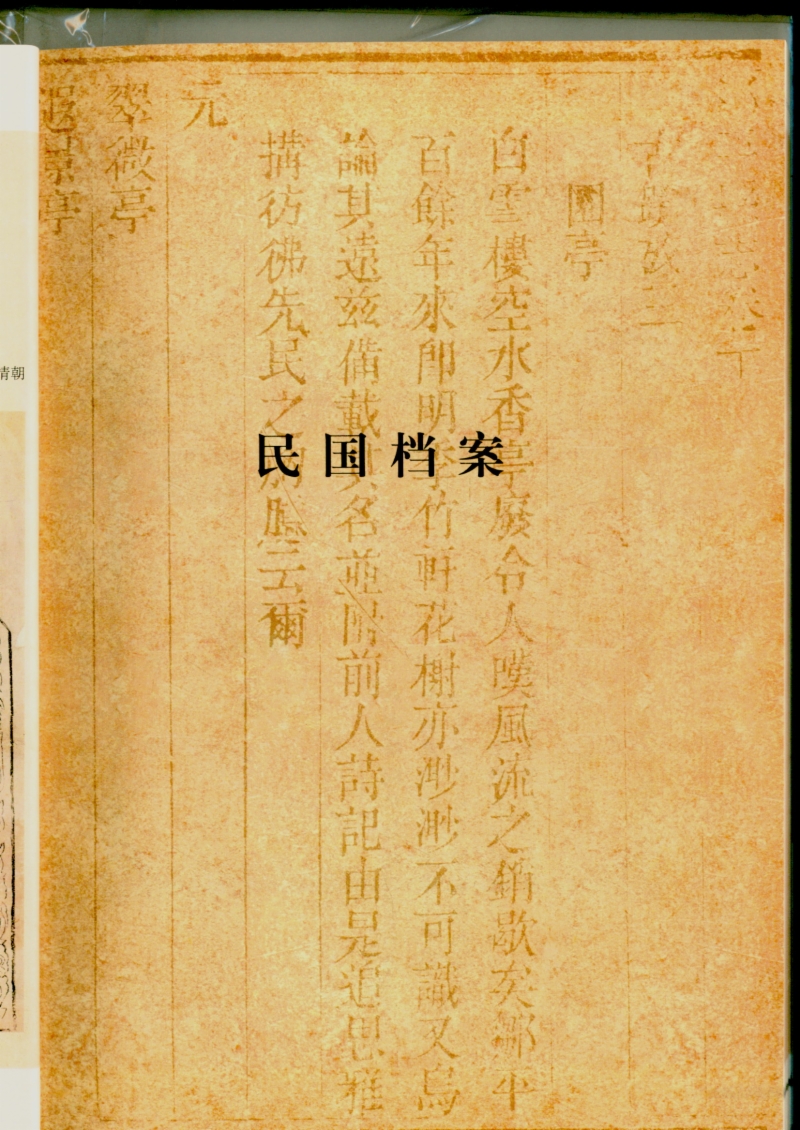 古蹟攷三
園亭
白雲樓空水香亭廢令人嘆風流之銷歇矣鄒平
百餘年來即明季竹軒花榭亦渺渺不可識又烏
論其遠茲備載其名並附前人詩記由是追思雅
搆彷彿先民之勝云爾
元
翠微亭
遐景亭
民国档案
清朝